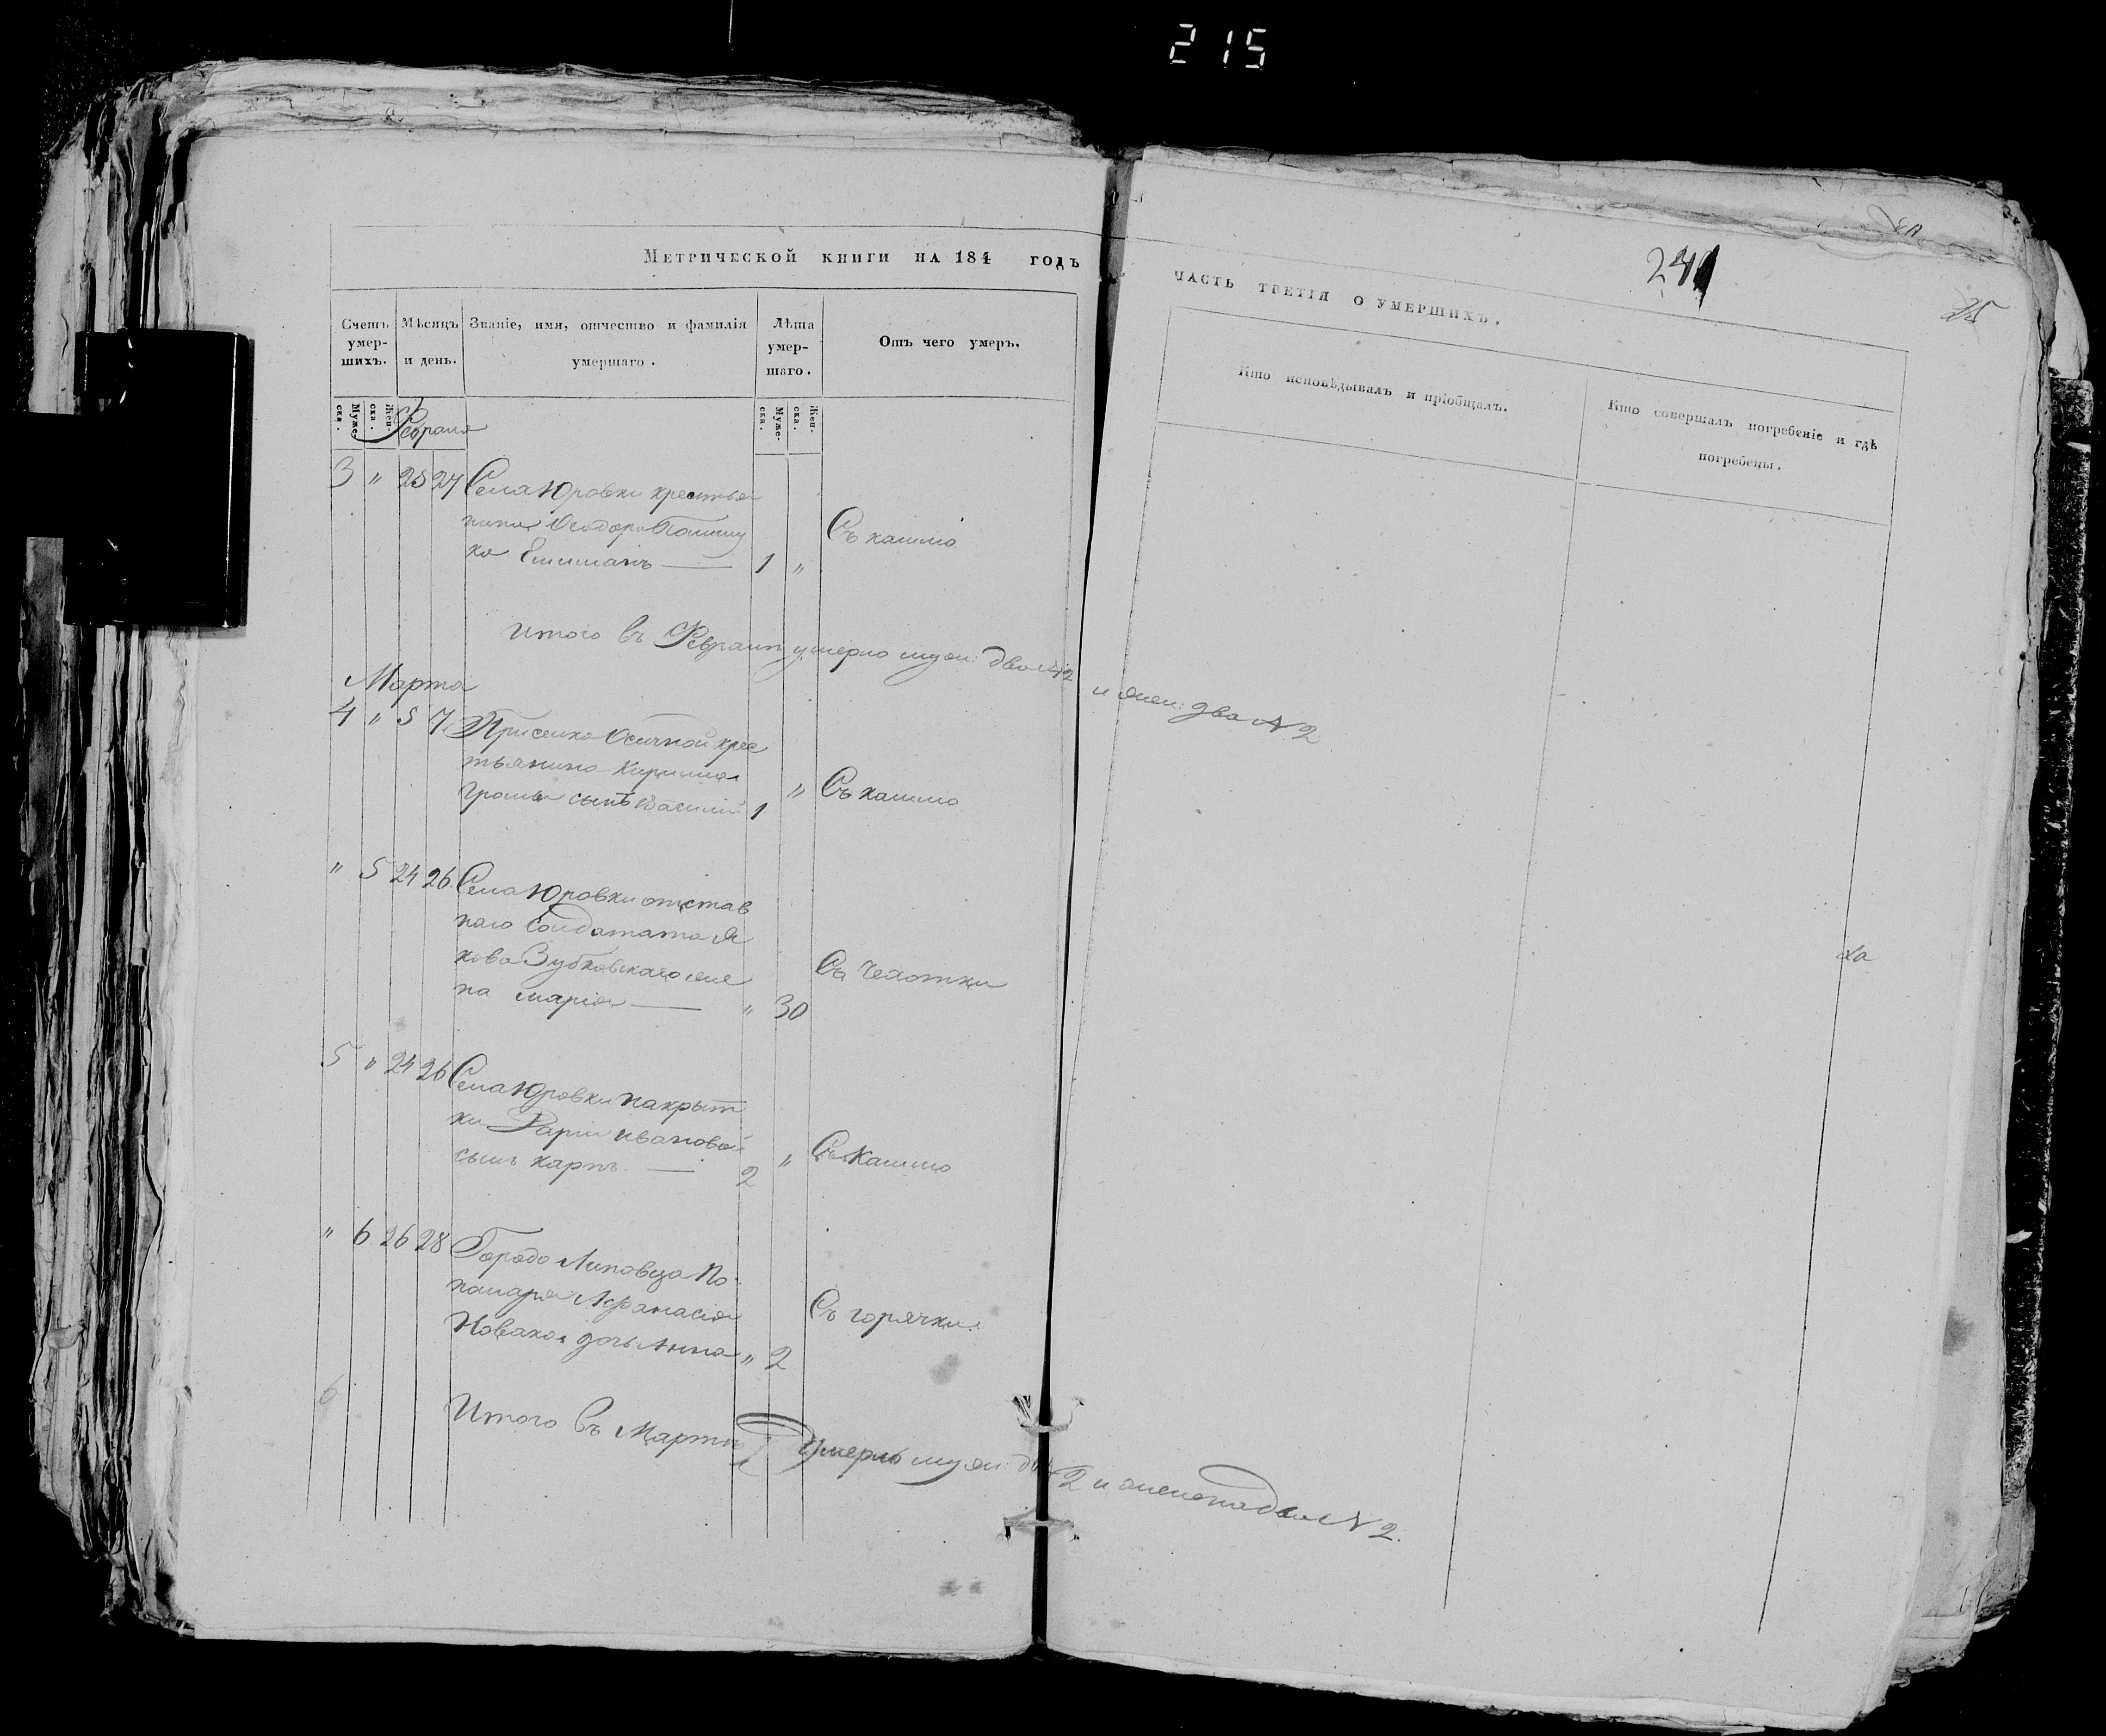 215
Метрической книги на 184 годъ
часть третія о умершихъ.
241
25
Счетъ умер-шихъ.
Мѣсяцъ и день.
Званіе, имя, отчество и фамилія умершаго.
Лѣта умер-шаго.
Отъ чего умеръ.
Кто исповѣдывалъ и пріобщалъ.
Кто совершалъ погребеніе и гдѣ погребены.
Муже-ска.
Жен-ска.
Муже-ска.
Жен-ска.
Февраля
3 " 25 27 Села Юровки крестья
нина Ѳеодора
ка 1 "
Съ кашлю
Итого въ Февралѣ умерло муж: два №2 и жен: два №2
Марта
4 " 5 7 Приселка Осичной крес
тьянина Кирилла
сынъ Василій 1 " Съ кашлю
" 5 24 26 Села Юровки отстав
наго Солдата Я
кова Зубковскаго же
на Марія " 30
Съ Чехотки
5 " 24 26 Села Юровки накрыт
ки Ивановой
сынъ Карпъ 2 " Съ Кашлю
" 6 26 28 Города Липовца По
намаря Афанасія
Новака дочь Анна " 2
Съ горячки.
6
Итого въ Мартѣ Умерло муж: два №2 и женска два №2.
ха